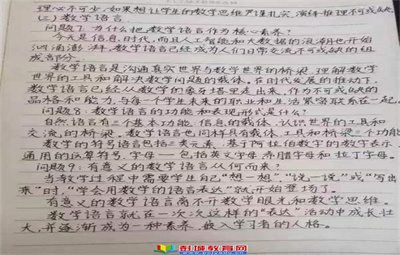 理必不可少,如果想让学生的数学思维严谨扎实,演绎推理不可或缺
(三)数学语言。
问题7:为什么把数学语言作为核心素养?
今天是信息时代,而且人工智能和大数据的浪潮也开始
汹涌澎湃,数学语言已经成为人们日常交流不可或缺的组
成部分。
数学语言是沟通真实世界与数学世界的桥梁,理解数学
世界的工具和解决数学问题的载体。在时代发展的推动下,
数学语言已经从数学的象牙塔里走出来,作为不可或缺的
品格和能力,与每一个学生未来的职业和生活紧密联系在一起。
问题8:数学语言的功能和表现形式是什么?
自然语言有三个基本功能:信息的载体、认识世界的工具和
交流的桥梁。数学语言也同样具有载体、工具和桥梁三个功能
数学的符号语言包括三类元素:基于阿拉伯数字的数字表示,
通用的运算符号,字母——包括英文字母、希腊字母和拉丁字母。
问题9:有意义的数学语言从何而来?
当教学过程中需要学生自己“想一想”“说一说”或“写出
来”时,“学会用数学的语言表达”就开始登场了。
有意义的数学语言离不开数学眼光和数学思维。
数学语言就在一次次这样的“表达”活动中成长壮
大,并逐渐成为一种素养,嵌入学习者的人格。
彭城教育网